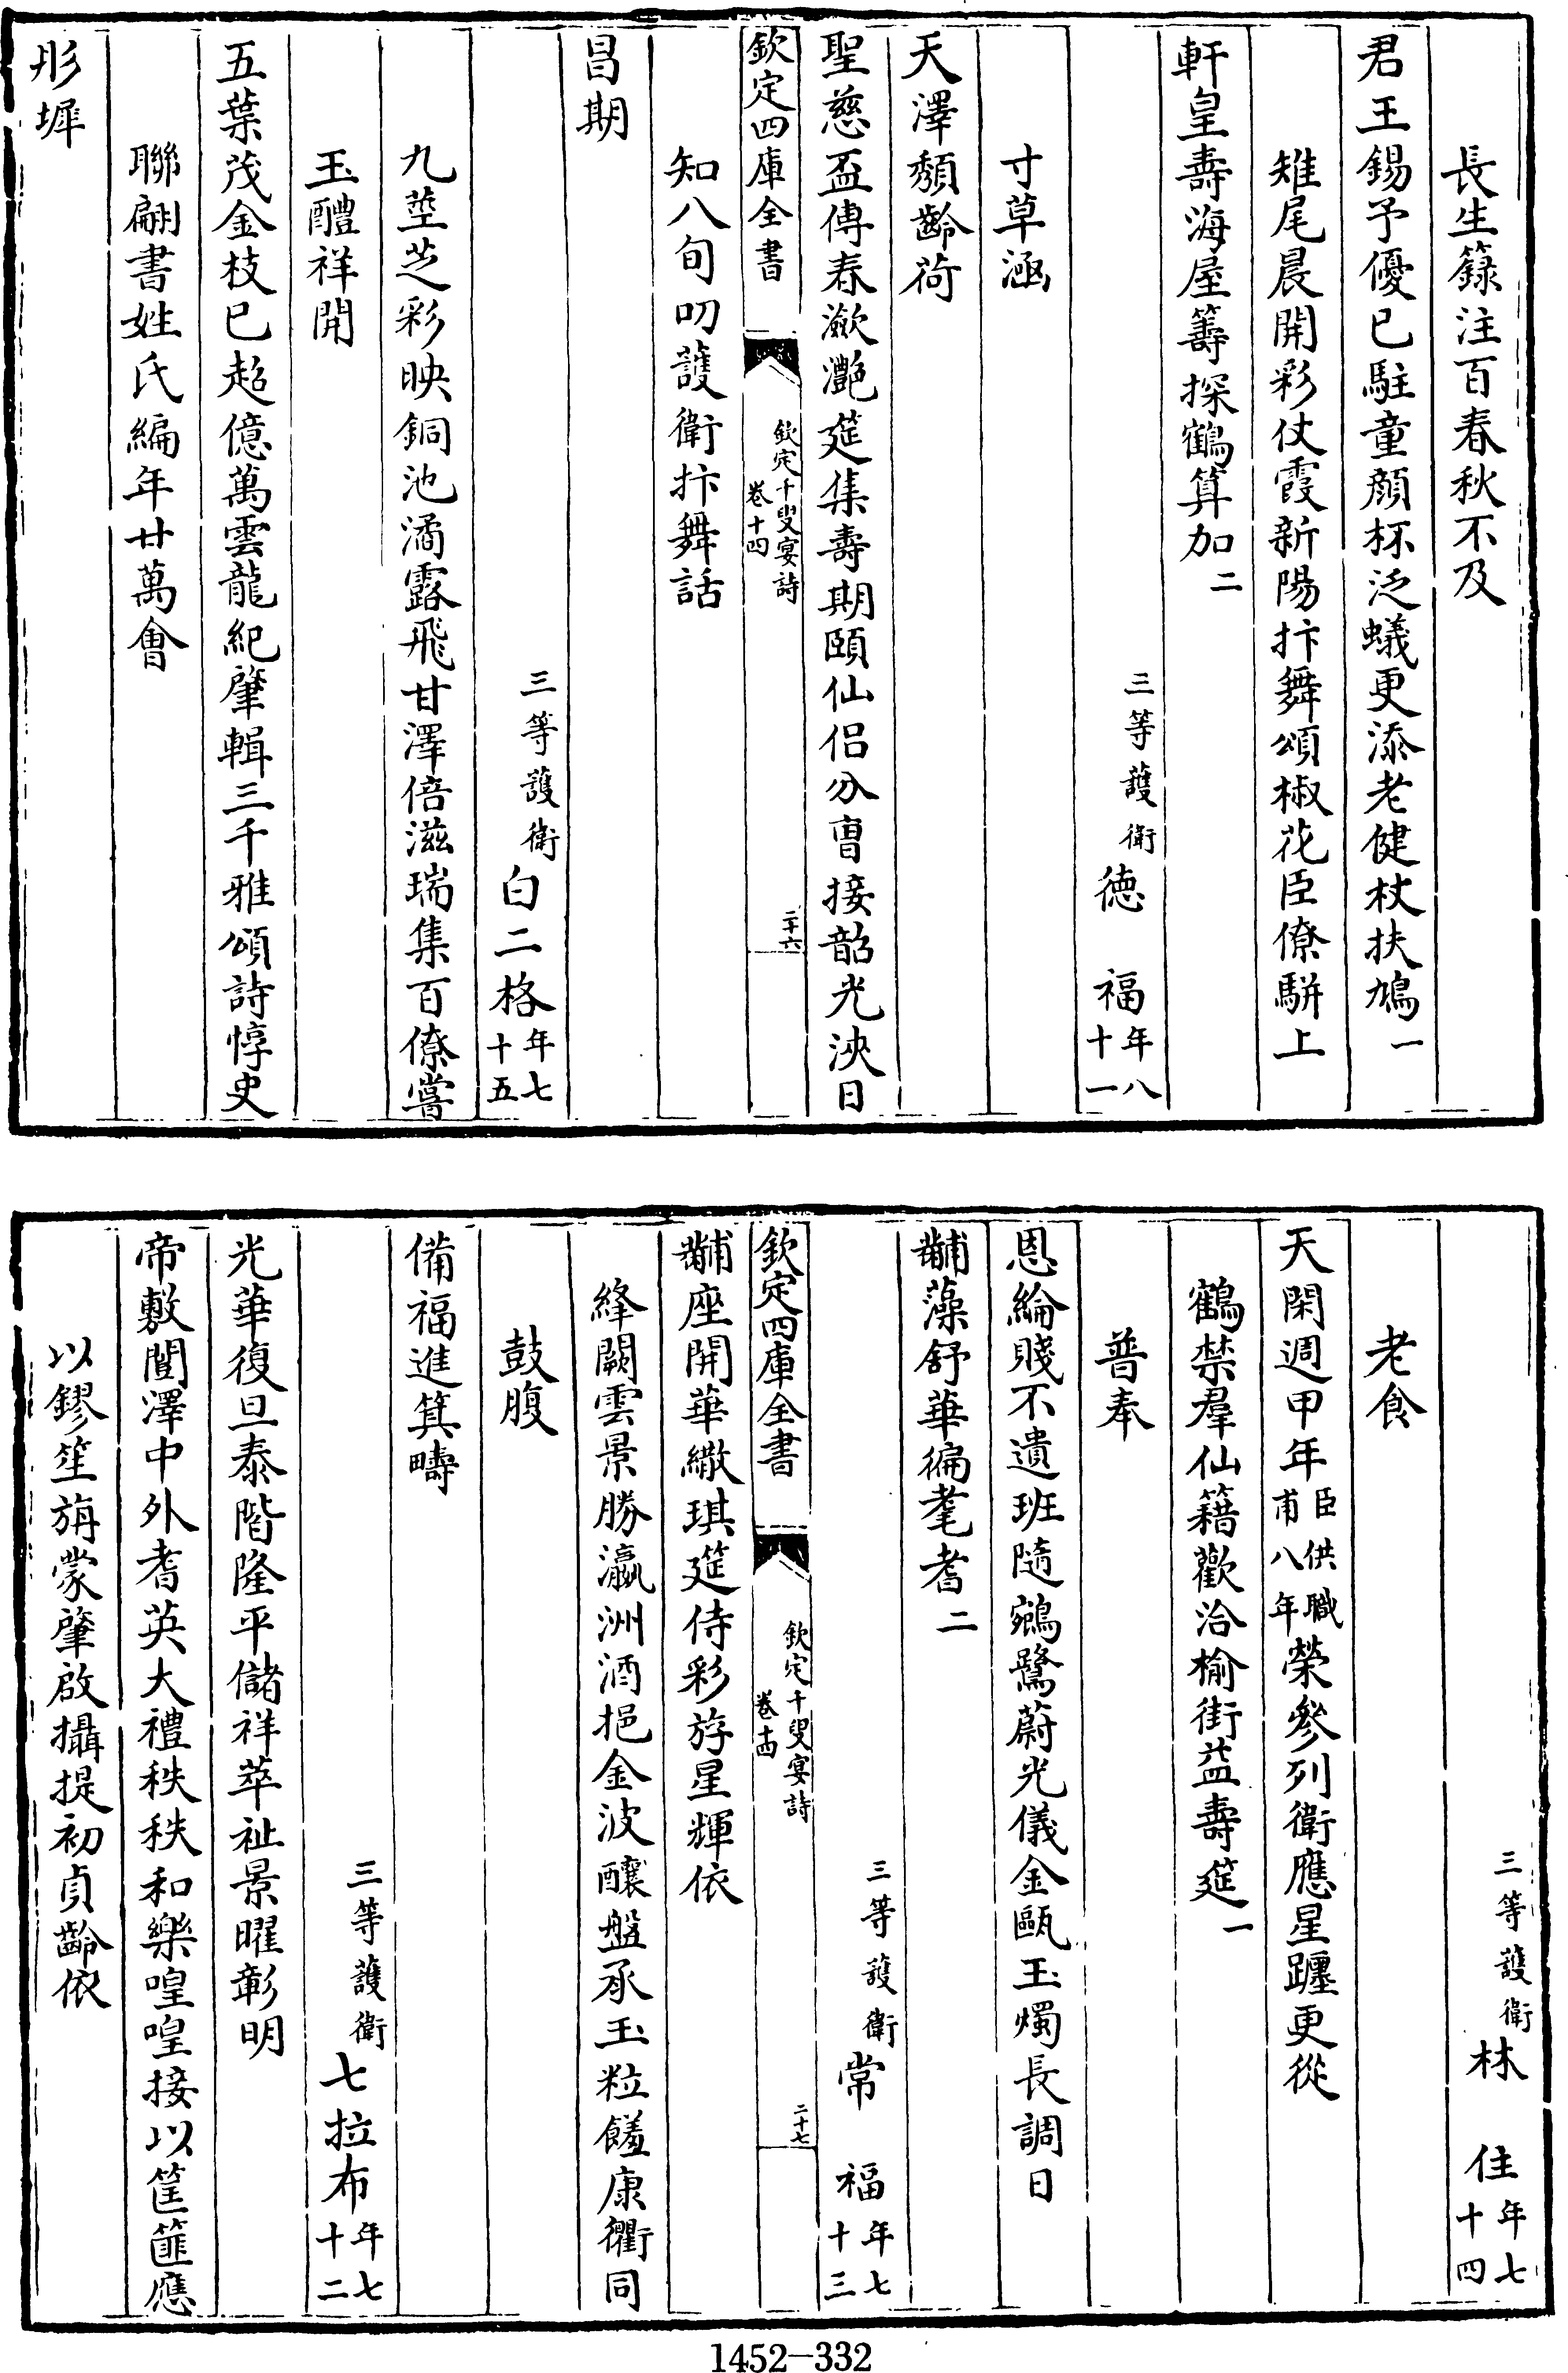 長生籙注百春秋不及
君王錫予優已駐童顔杯泛蟻更添老健杖扶鳩一
雉尾晨開彩仗霞新陽抃舞頌椒花臣僚駢上
軒皇壽海屋籌探鶴算加二
三等護衛德　福年八十一
寸草涵
天澤頽齡荷
聖慈盃傳春瀲灧筵集壽期頤仙侣分曹接韶光浹日
欽定四庫全書
欽定千叟宴詩
卷十四
二十六
知八旬叨護衛抃舞話
昌期
三等護衛白二格年七十五
九莖芝彩映銅池潏露飛甘澤倍滋瑞集百僚嘗
玉醴祥開
五葉茂金枝已超億萬雲龍紀肇輯三千雅頌詩惇史
聯翩書姓氏編年廿萬會
彤墀
三等護衛林　住年七十四
老食
天閑週甲年臣供職甫八年榮叅列衛應星躔更從
鶴禁羣仙籍歡洽榆街益壽筵一
普奉
恩綸賤不遺班隨鵷鷺蔚光儀金甌玉燭長調日
黼藻舒華徧耄耆二
三等護衛常　福年七十三
欽定四庫全書
欽定千叟宴詩
卷十四
二十七
黼座開華繖琪筵侍彩斿星輝依
絳闕雲景勝瀛洲酒挹金波釀盤承玉粒饈康衢同
鼓腹
備福進箕疇
三等護衛七拉布年七十二
光華復旦泰階隆平儲祥萃祉景曜彰明
帝敷闓澤中外耆英大禮秩秩和樂喤喤接以筐篚應
以鏐笙旃蒙肇啟攝提初貞齡依
1452—332